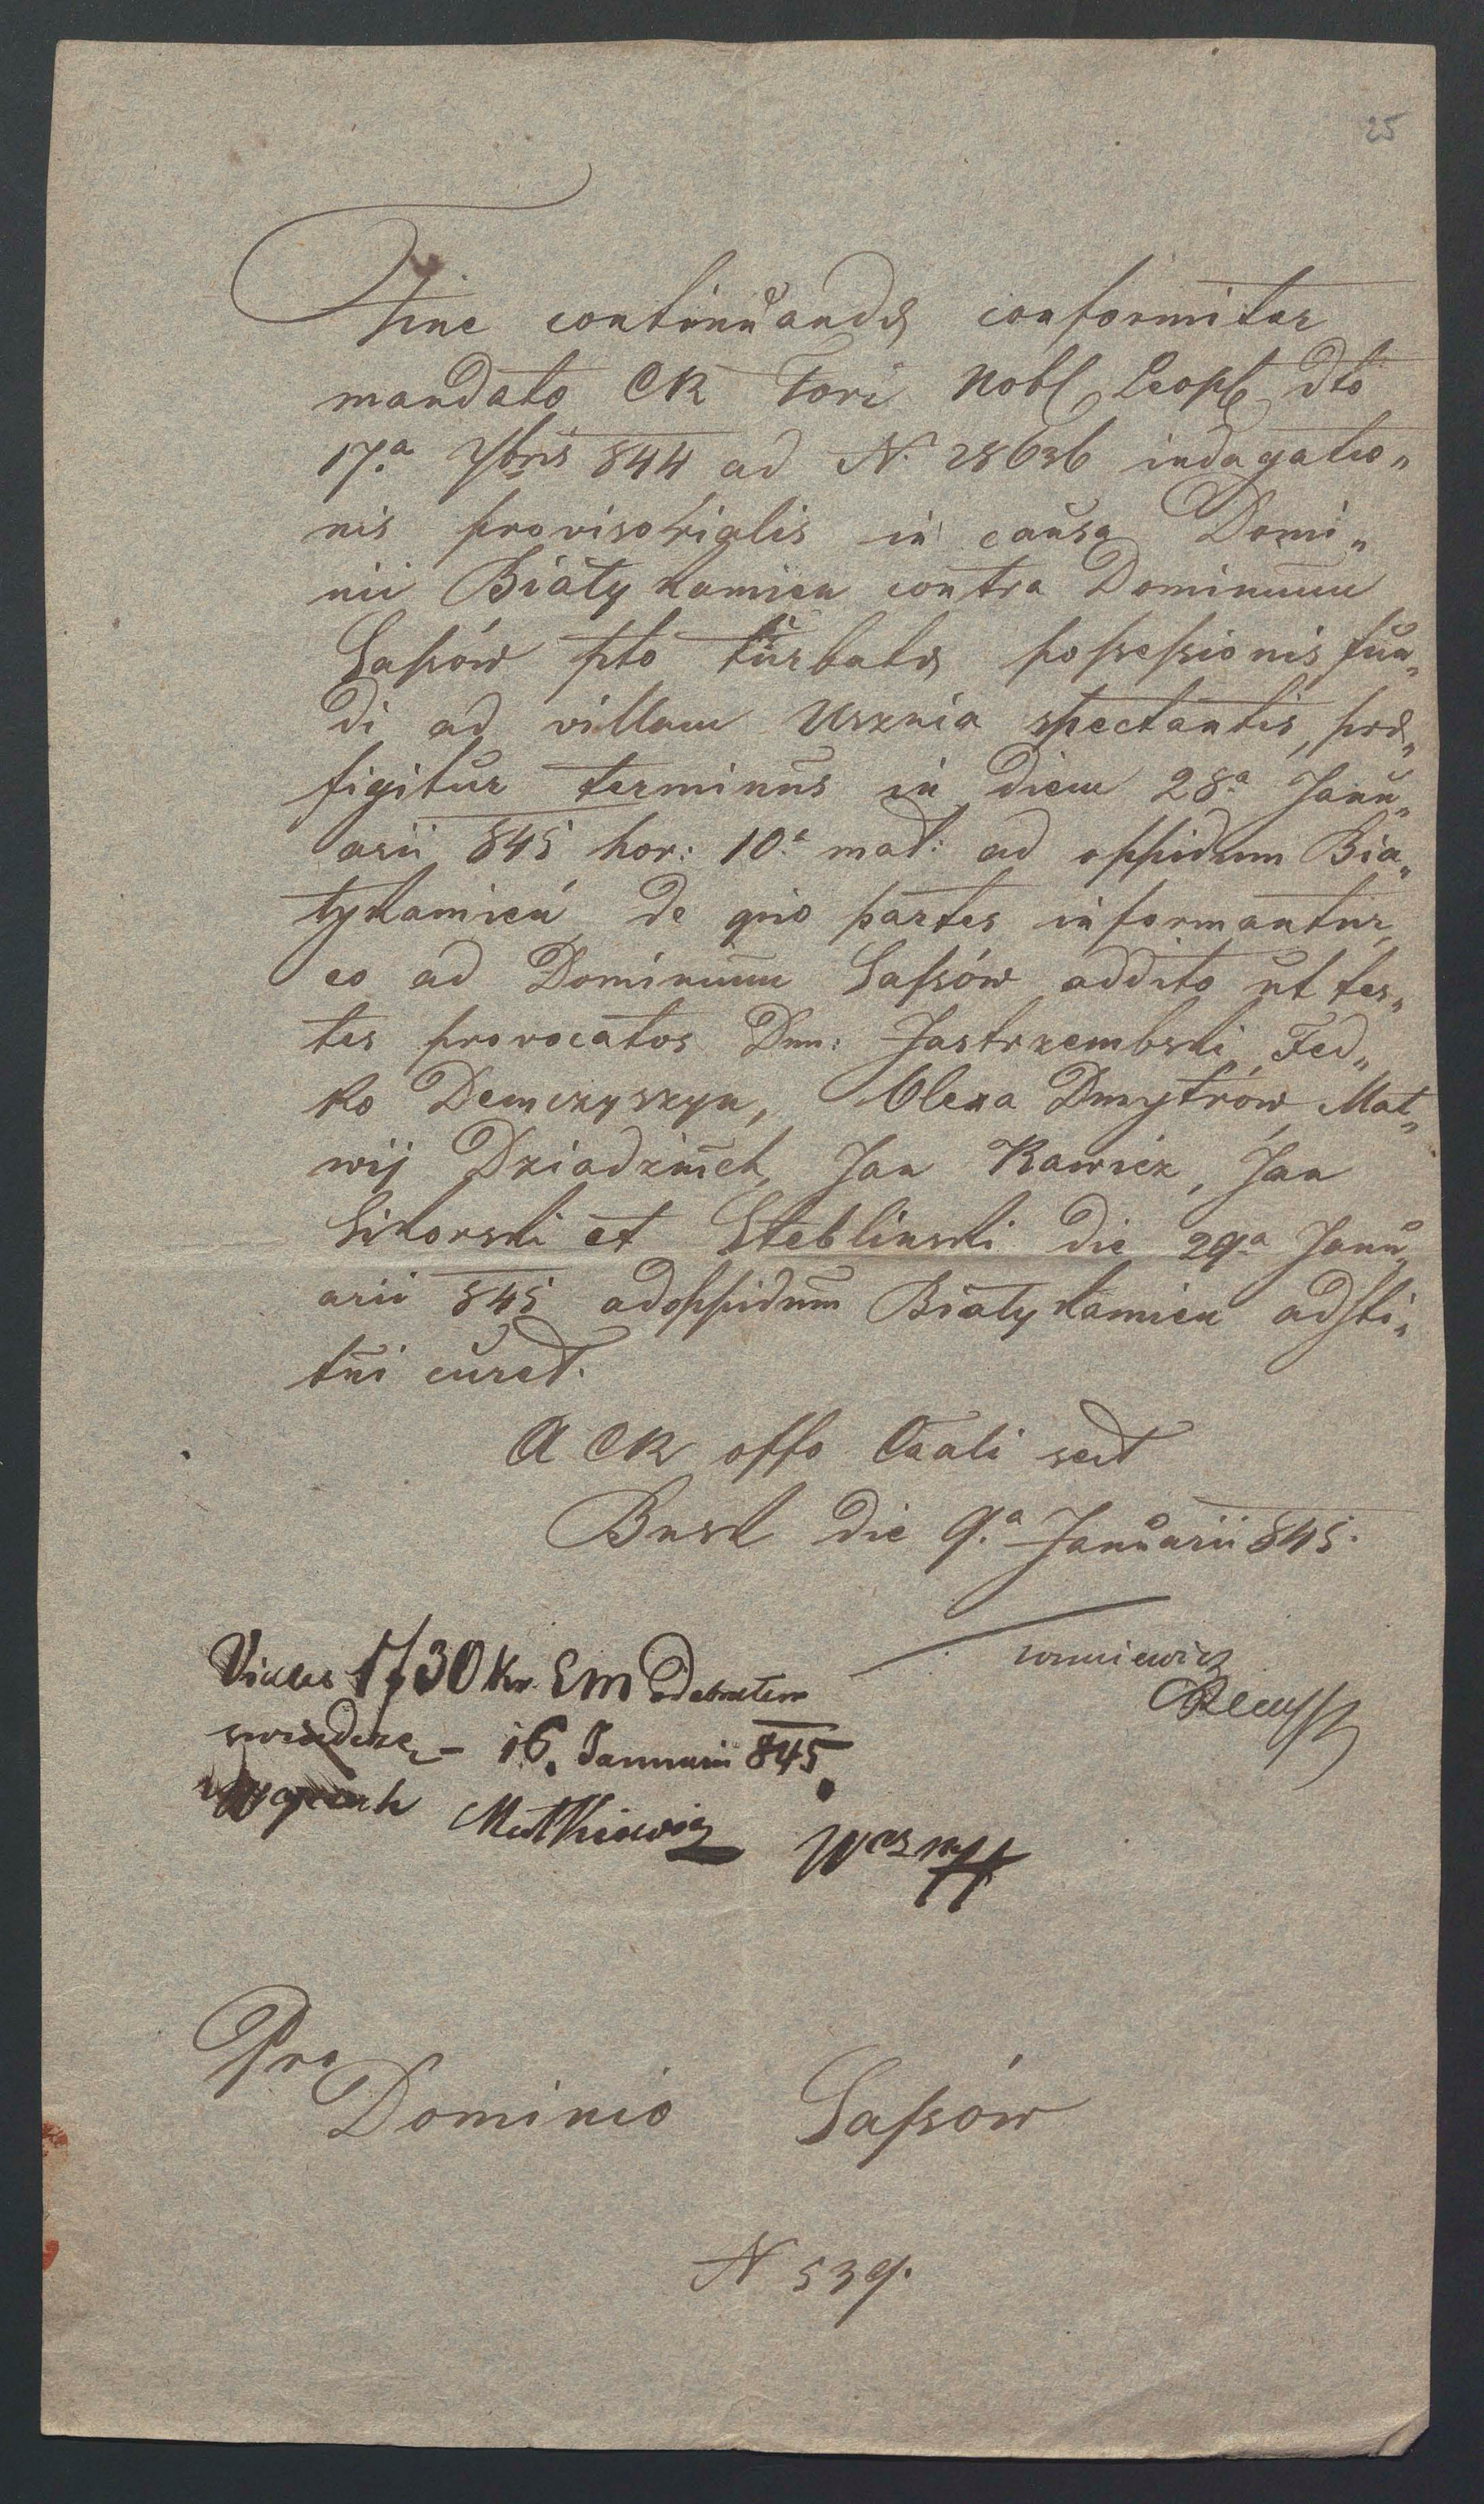 25
Fine continuandæ conformiter
mandato CR Fori Nobl Leopl dto
17.a 7bris 844 ad N. 28636 indagatio„
nis provisorialis in causa Domi„
nii Białykamien contra Dominium
Sassów pto turbatæ possessionis fun„
di ad villam Usznia spectantis, præ„
figitur terminus in diem 28.a Janu„
arii 845 hor: 10.a mat: ad oppidum Bia„
łykamień de quo partes informantur,
eo ad Dominium Sassów addito ut tes„
tes provocatos Dnn: Jastrzembski, Fed„
ko Demczyszyn, Olexa Dmytrów, Mat„
wij Dziadziuch, Jan Rawicz, Jan
Sikorski et Steblinski die 29.a Janu„
arii 845 ad oppidum Białykamien adsti„
tui curet.
A CR offo Caali sect
Busk die 9.a Januarii 845.
1f 30 kr. Cm odebrałem
swiadczę – 16. Januarii 845.
Mutkiewicz
Pro
Dominio Sassów
N 539.